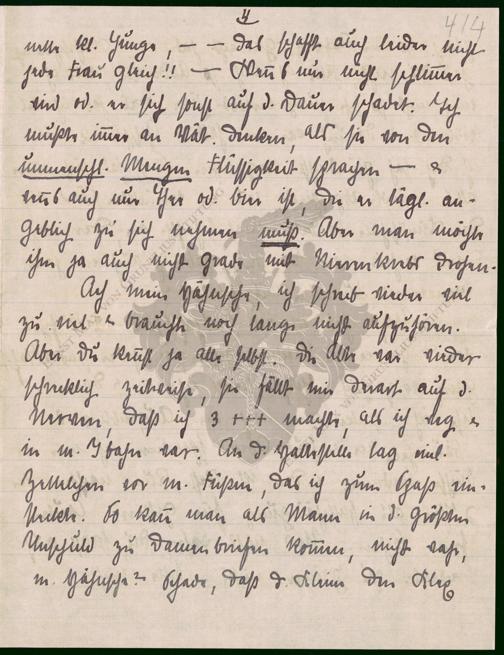 4
4/4
nette kl. Junge, — — das schafft auch leider nicht
jede Frau gleich!! — Wenn's nur nicht schlimmer
wird od. er sich sonst auf d. Dauer schadet. Ich
mußte immer an Vät. denken, als sie von den
unmenschl. Mengen Flüssigkeit sprachen — &
wenn's auch nur Thee od. bier ist, die er tägl. an-
geblich zu sich nehmen muß. Aber man möchte
ihm ja auch nicht grade mit Nierenkrebs drohen.
Ach mein Hähnsche, ich schreib wieder viel
zu viel & brauchte noch lange nicht aufzuhören.
Aber Du kennst ja alles selbst. Die Alte war wieder
schrecklich zeitweise, sie fällt mir derart auf d.
Nerven, daß ich 3 +++ machte, als ich weg &
in m. Ibahn war. An d. Haltestelle lag
Zettelchen vor m. Füßen, das ich zum Spaß ein-
steckte. So kann man als Mann in d. größten
Unschuld zu Damenbriefen kommen, nicht wahr,
m. Hähnsche? Schade, daß d. Kleine den